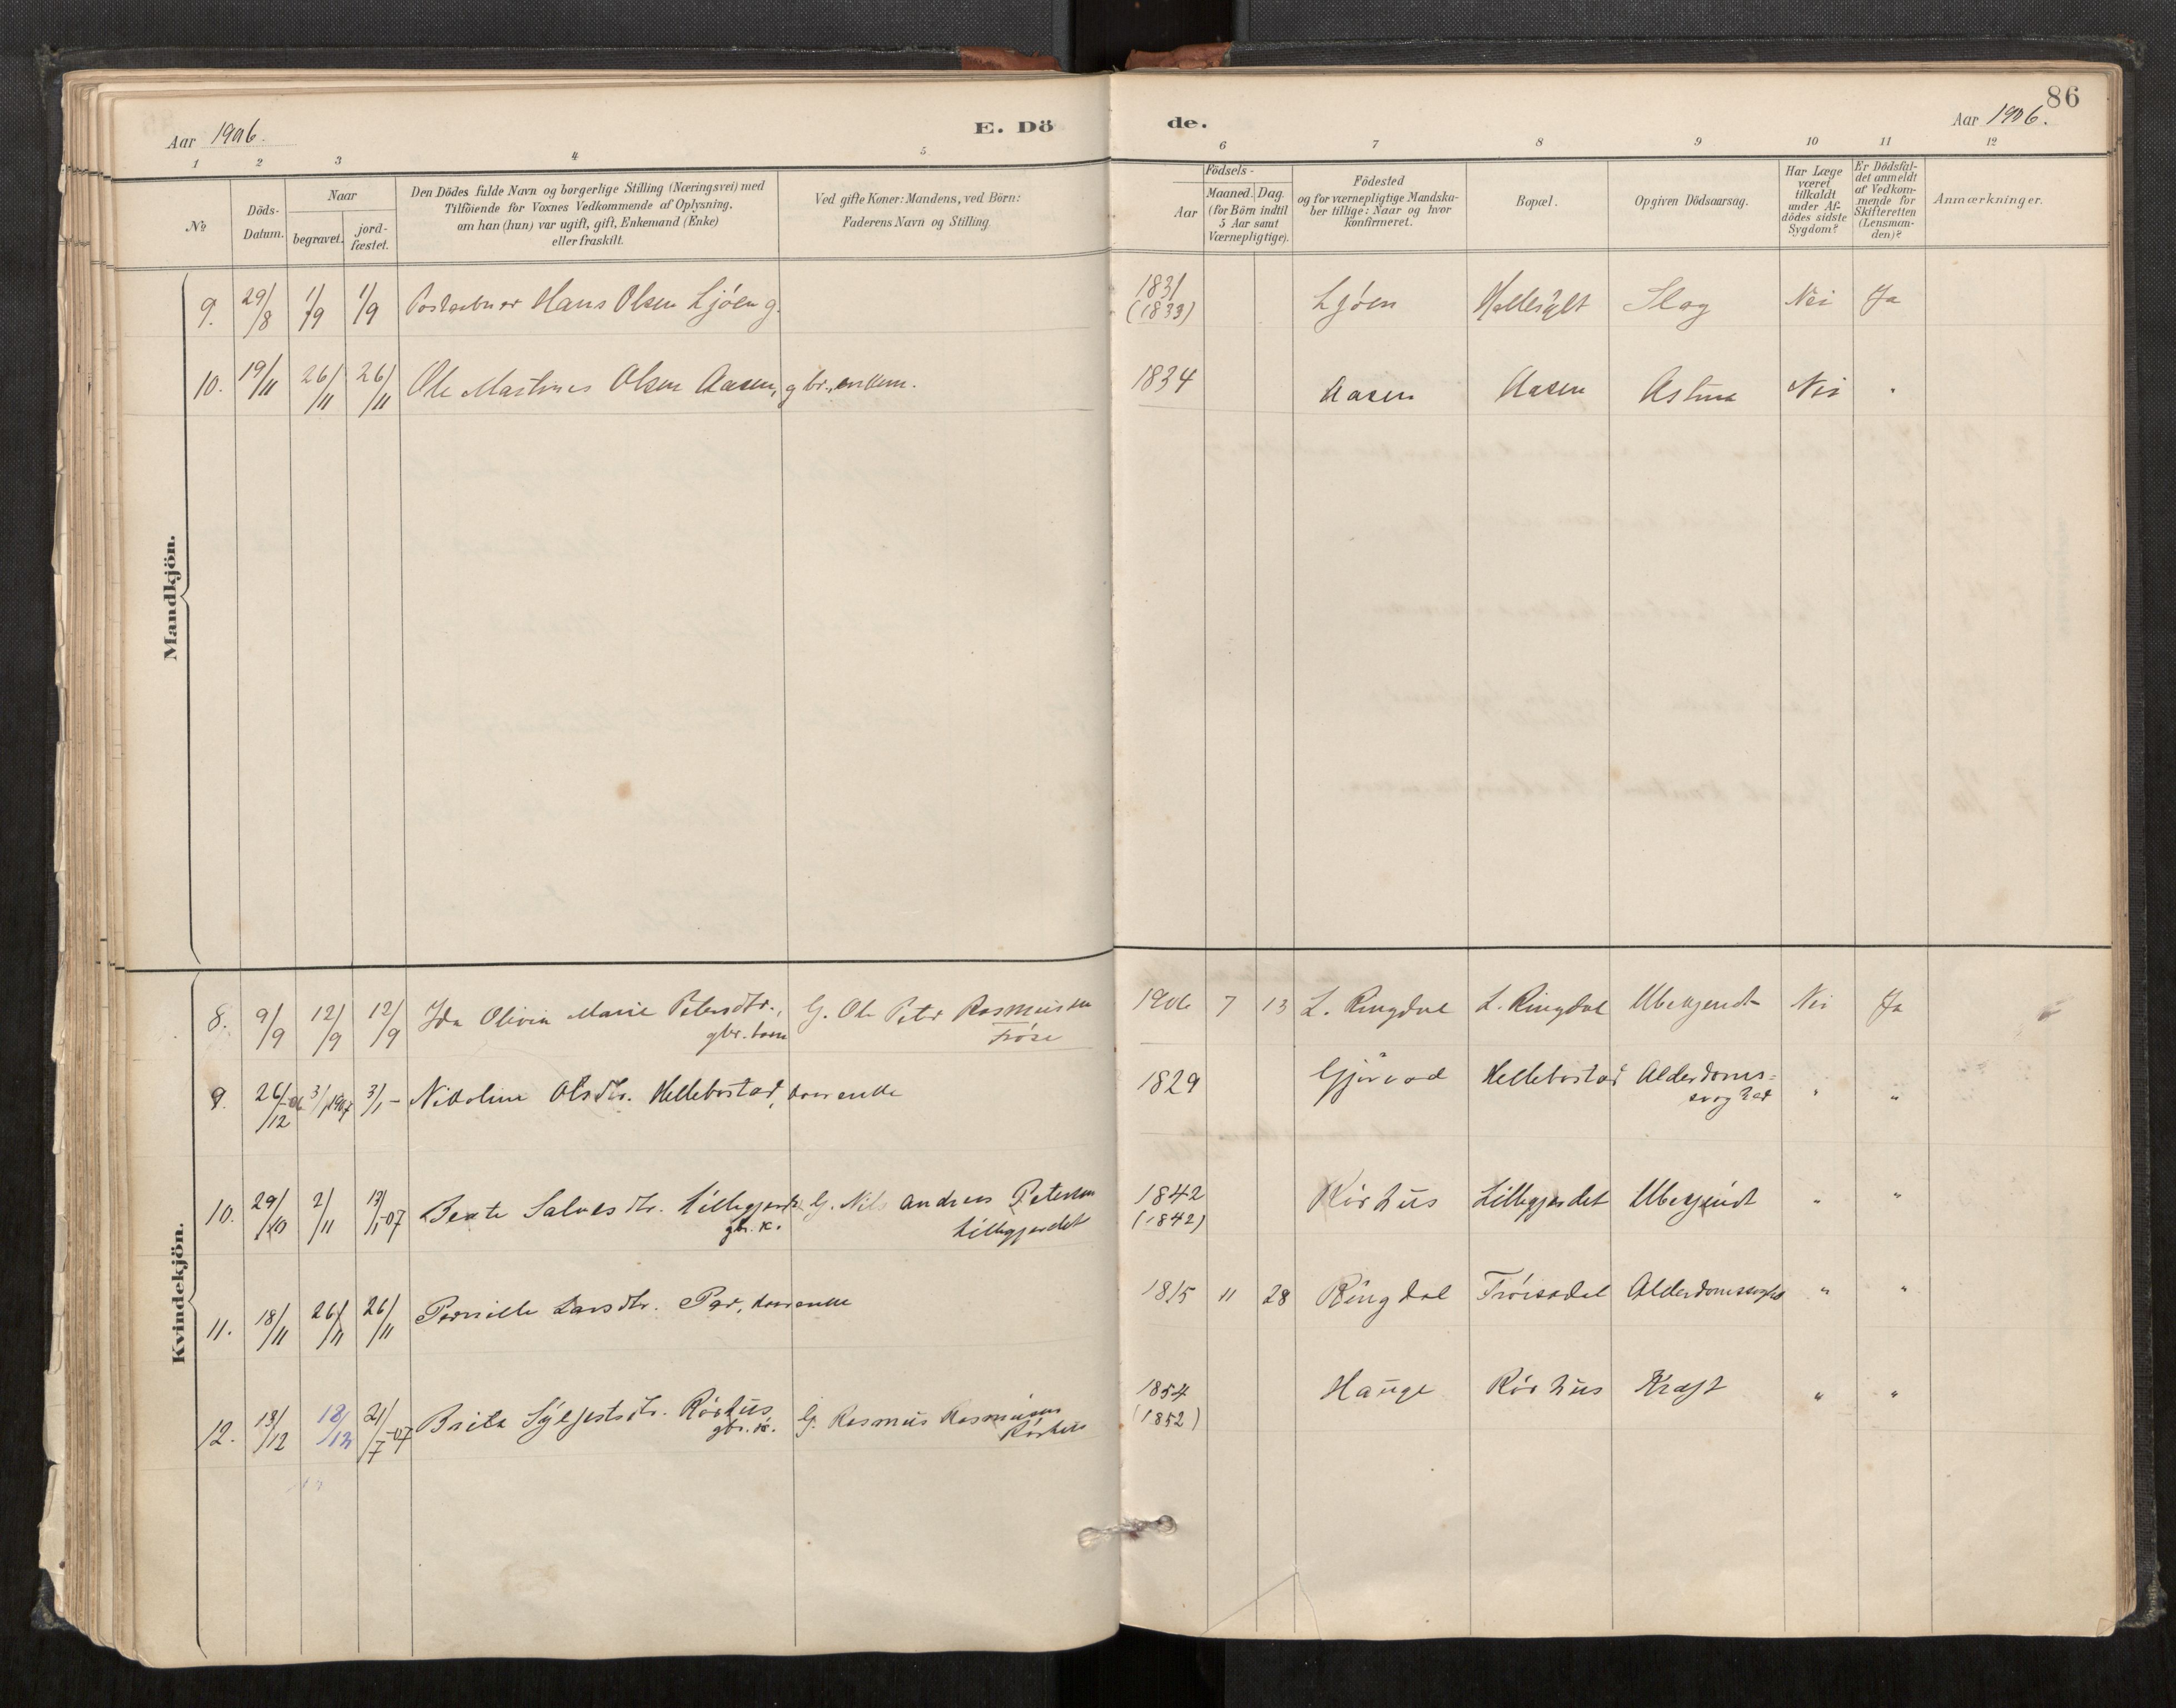 86
Aar 1906.
E. Dö
de.
Aar 1906.
1 2 3 4 5 6 7 8 9 10 11 12
№
Döds-
Datum.
Naar
begravet.
jord-
fæstet.
Den Dödes fulde Navn og borgerlige Stilling (Næringsvei) med
Tilföiende for Voxnes Vedkommende af Oplysning,
om han (hun) var ugift, gift, Enkemand (Enke)
eller fraskilt.
Ved gifte Koner: Mandens, ved Börn:
Faderens Navn og Stilling.
Födsels-
Aar
Maaned.
Dag.
(for Börn indtil
5 Aar samt
Værnepligtige).
Födested
og for værnepligtige Mandska-
ber tillige: Naar og hvor
konfirmeret.
Bopæl.
Opgiven Dödsaarsag.
Har Læge
været
tilkaldt
under Af-
dödes sidste
Sygdom?
Er Dödsfal-
det anmeldt
af Vedkom-
mende for
Skifteretten
(Lensman-
den)?
Anmærkninger.
Mandkjön.
9. 29/8 1/9 1/9 Postaabner Hans Olsen Ljöen g. 1831 Ljöen Hellesylt Slag Nei Ja
(1833)
10. 19/11 26/11 26/11 Ole Martinus Olsen Aasen, gbr., enkem. 1834 Aasen Aasen Astma Nei "
Kvindekjön.
8. 9/9 12/9 12/9 Ida Olivia Marie Petersdtr., G. Ole Peter Rasmussen 1906 7 13 L. Ringdal L. Ringdal Ubekjendt Nei Ja
gbr. barn Tröse
9. 26/12-06 3/1 1907 3/1 - Nikoline Olsdtr. Hellebostad, kaarenke 1829 Hellebostad Alderdoms=
svaghed " "
10. 29/10 2/11 13/1-07 Beate Salvesdtr. Lillegjerde G. Nils Andreas Petersen 1842 Rörhus Lillegjerdet Ubekjendt " "
gbr. k. Lillegjerdet (1842)
11. 18/11 26/11 26/11 Pernille Larsdtr. Par, kaarenke 1815 11 28 Ringdal Tröisadal Alderdomssvaghed " "
12. 13/12 18/12 21/7-07 Brita Syljertsdtr. Rörhus G. Rasmus Rasmussen 1854 Hauge Rörhus Kræft " "
gbr. k. Rörhus (1852)